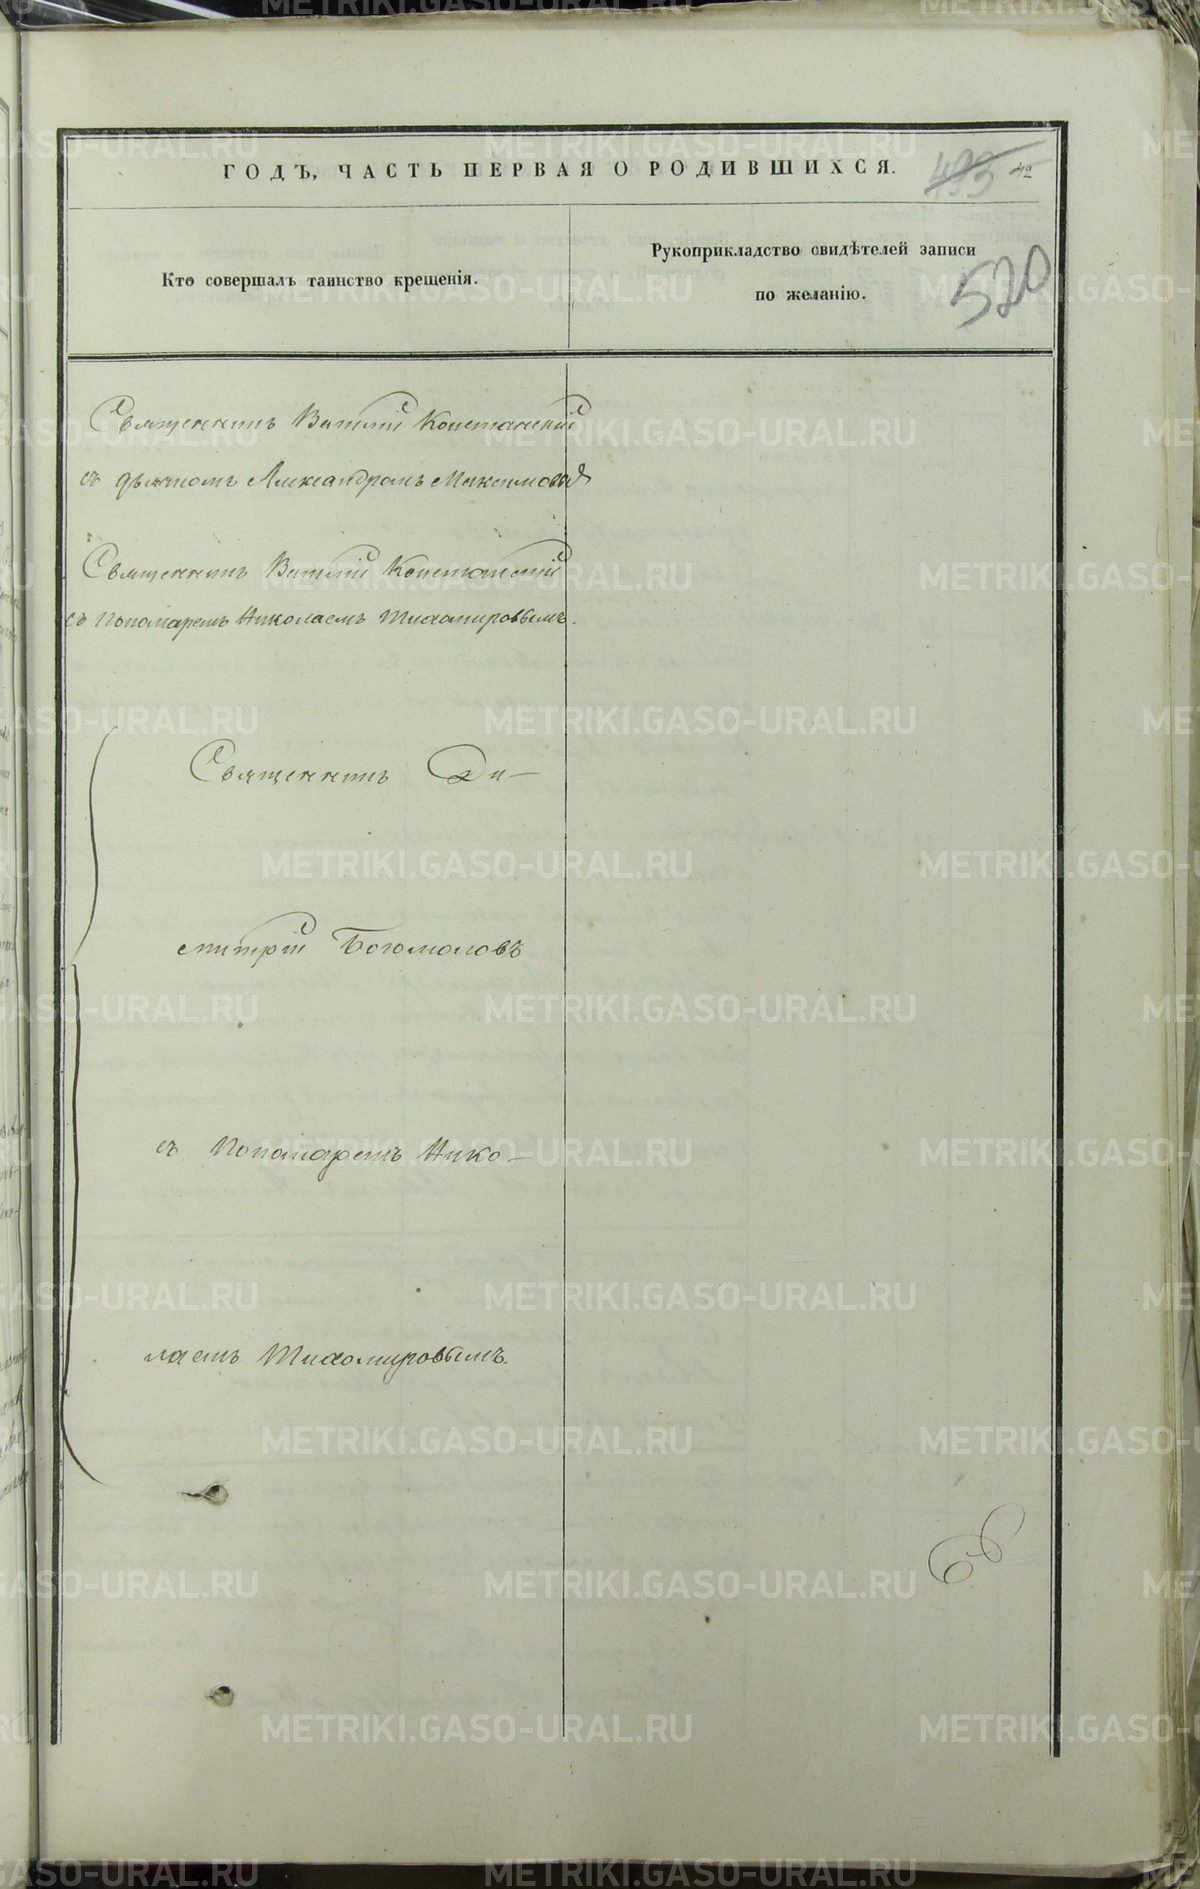 ГОДЪ, ЧАСТЬ ПЕРВАЯ О РОДИВШИХСЯ.
493 42
Кто совершалъ таинство крещенія.
Рукоприкладство свидѣтелей записи
по желанію.
520
Священникъ Виталій
съ дьячкомъ Александромъ
Священникъ Виталій
съ Пономаремъ Николаемъ Тихомировымъ.
Священникъ Ди-
митрій Богомоловъ
съ Пономаремъ Нико-
лаемъ Тихомировымъ.
METRIKI.GASO-URAL.RU